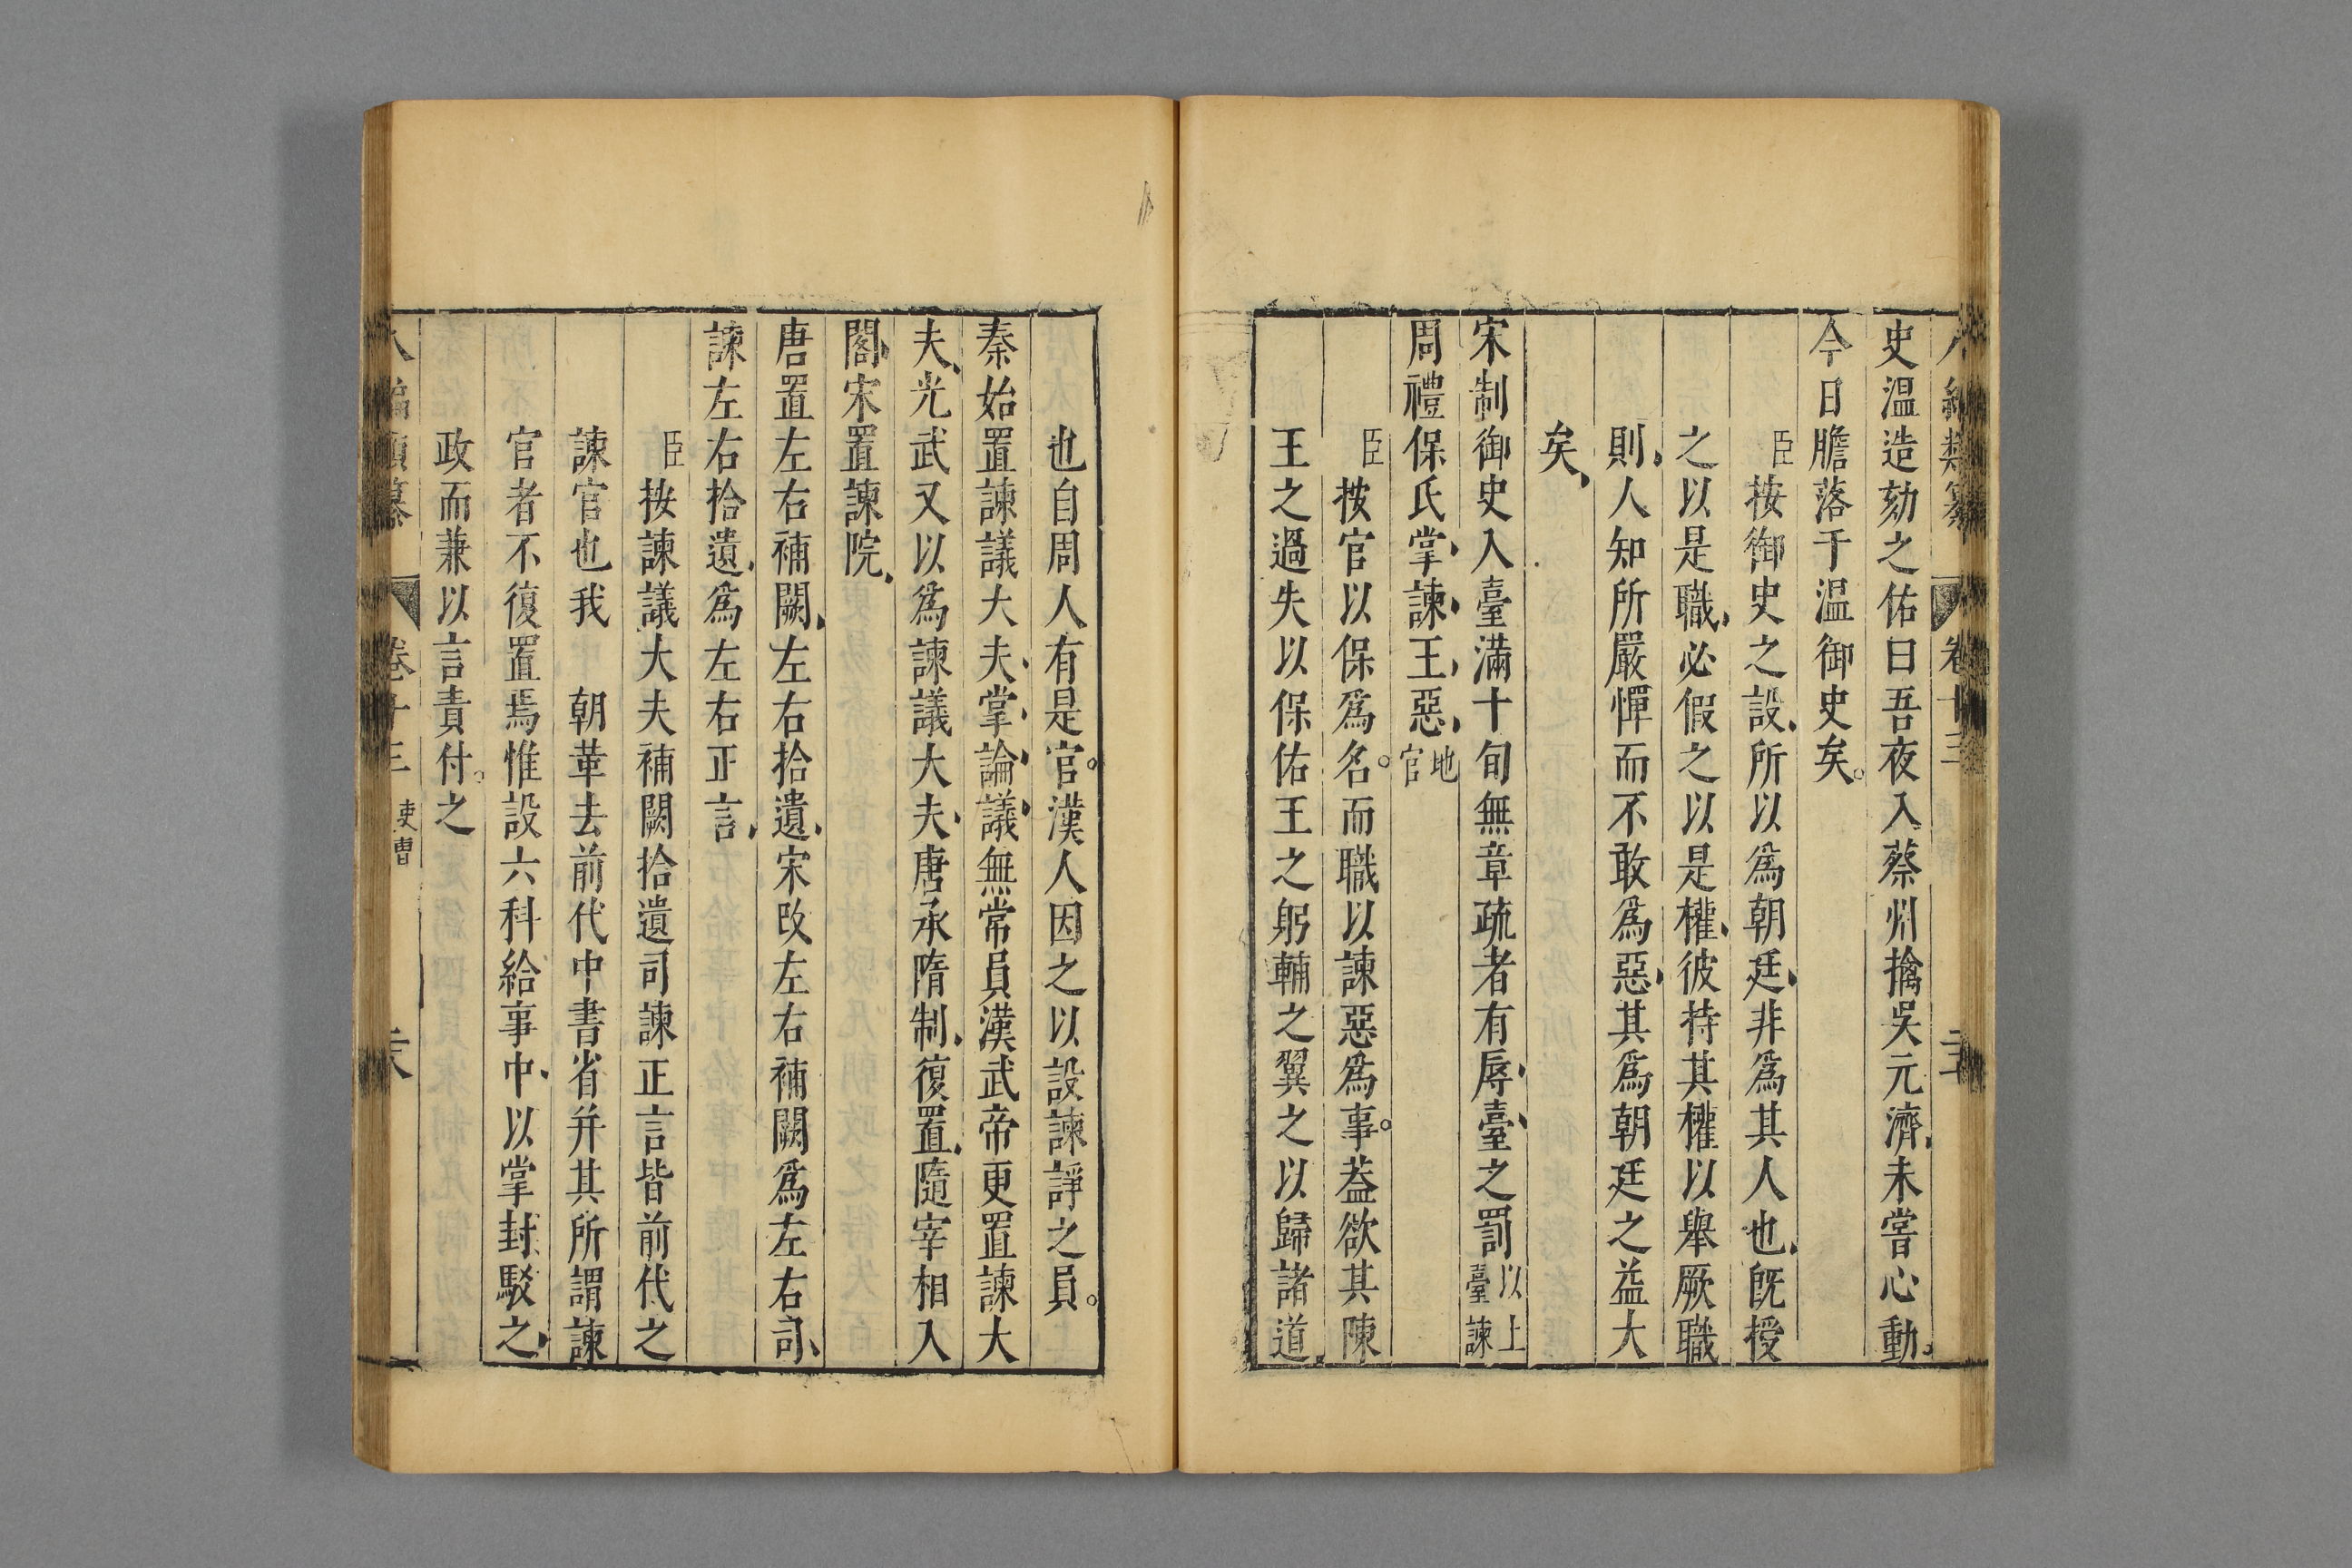 史温造劾之佑曰吾夜入蔡州擒吳元濟、未嘗心動。
今日膽落于温御史矣。
臣按御史之設、所以爲朝廷、非爲其人也、既授
之以是職、必假之以是權、彼持其權以舉厥職
則、人知所嚴憚而不敢爲惡、其爲朝廷之益大
矣、
宋制御史入臺滿十旬無章疏者有辱、臺、之罰以上臺諫
周禮保氏掌、諫、王、惡、地官
臣按官以保爲名。而職以諫惡爲事。葢欲其陳
王之過失以保佑王之躬輔之翼之以歸諸道、
也自周人有是官。漢人因之以設諫諍之員。
秦始置諫議大夫、掌、論、議、無常員漢武帝更置諫大
夫、光武又以爲諫議大夫、唐承隋制、復置、隨宰相入
閣、宋置諫院、
唐置左右補闕、左右拾遺、宋改左右補闕爲左右司、
諫左右拾遺、爲左右正言、
臣按諫議大夫補闕拾遺司諫正言皆前代之
諫官也我　朝革去前代中書省并其所謂諫
官者不復置焉惟設六科給事中、以掌封駁之、
政而兼以言責付。之
八編類纂　卷十三　吏曹